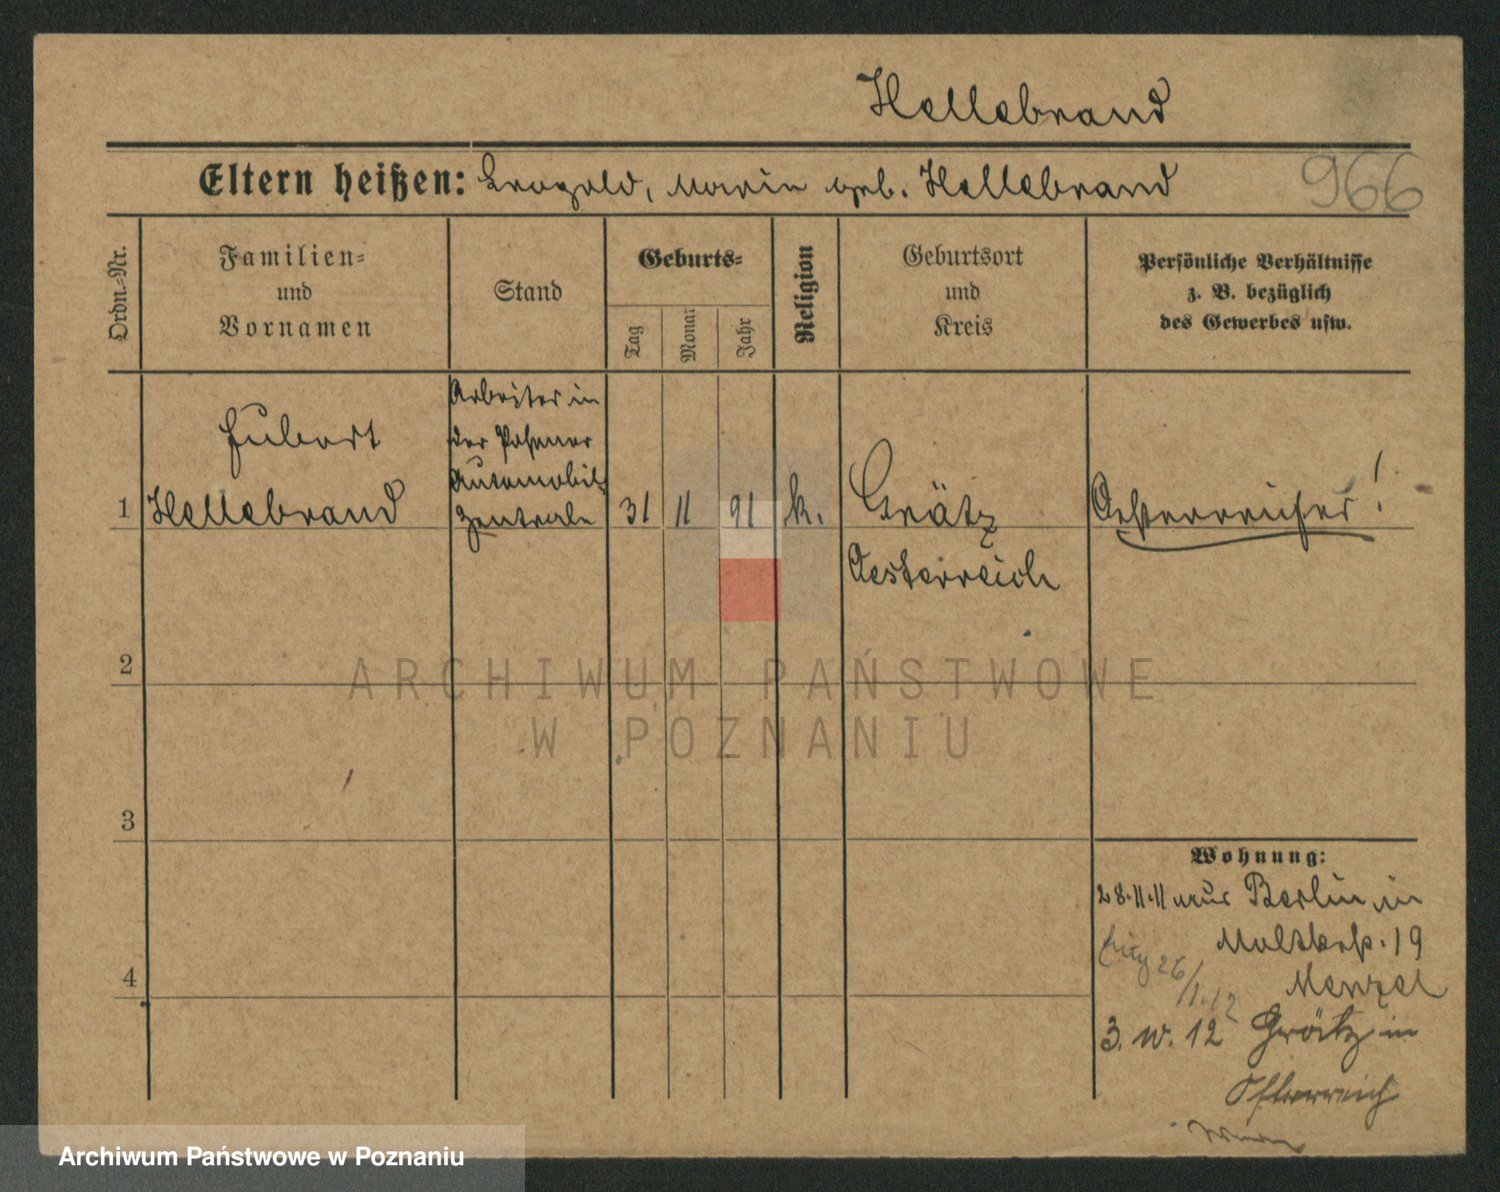 Hellebrand
Eltern heißen: Leopold, Marie geb. Hellebrand
966
Ordn.=Nr.
Familien=
und
Vornamen
Stand
Geburts=
Tag
Monat
Jahr
Religion
Geburtsort
und
Kreis
Persönliche Verhältnisse
z. B. bezüglich
des Gewerbes usw.
1
Hubert
Hellebrand
Arbeiter in
der Posener
Automobil-
Zentrale
31
11
91
k.
Grätz
Oesterreich
Oesterreicher!
2
3
4
Wohnung:
28.11.11 aus Berlin in
Moltkestr. 19
Menzel
26/1.12
3. IV. 12 Grätz in
Österreich
ARCHIWUM PAŃSTWOWE
W POZNANIU
Archiwum Państwowe w Poznaniu